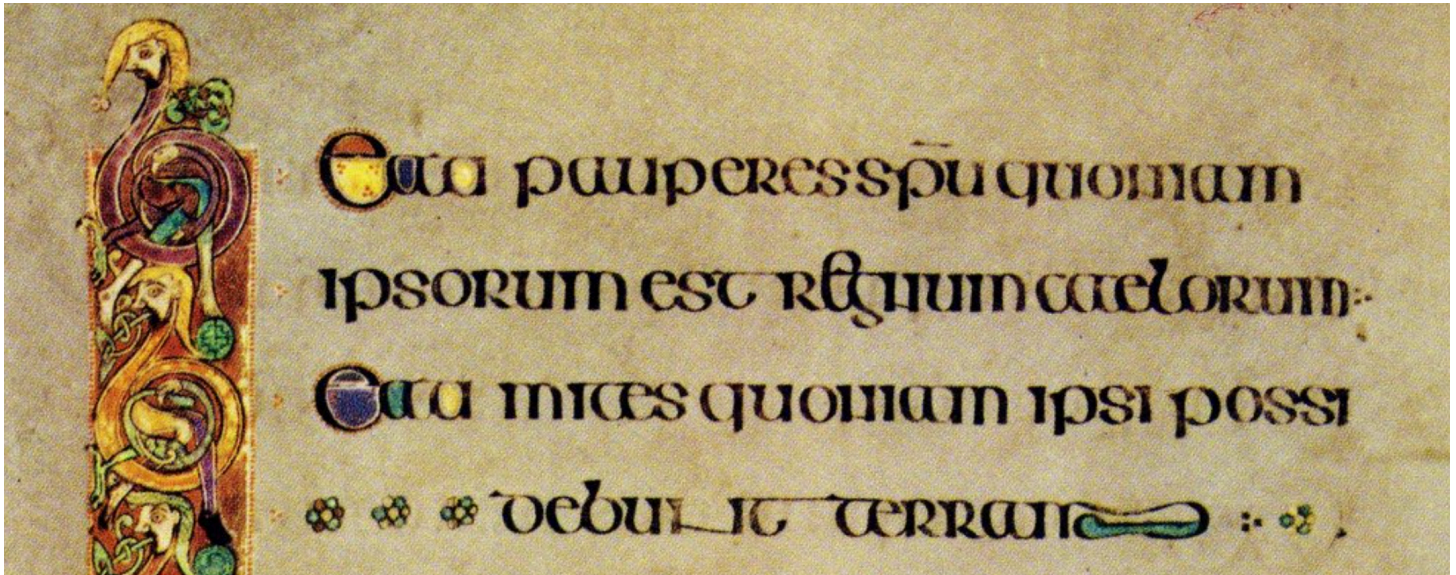 Beati pauperes sp̄u quoniam
ipsorum est regnum caelorum:·
Beati mites quoniam ipsi possi
debunt terram :·